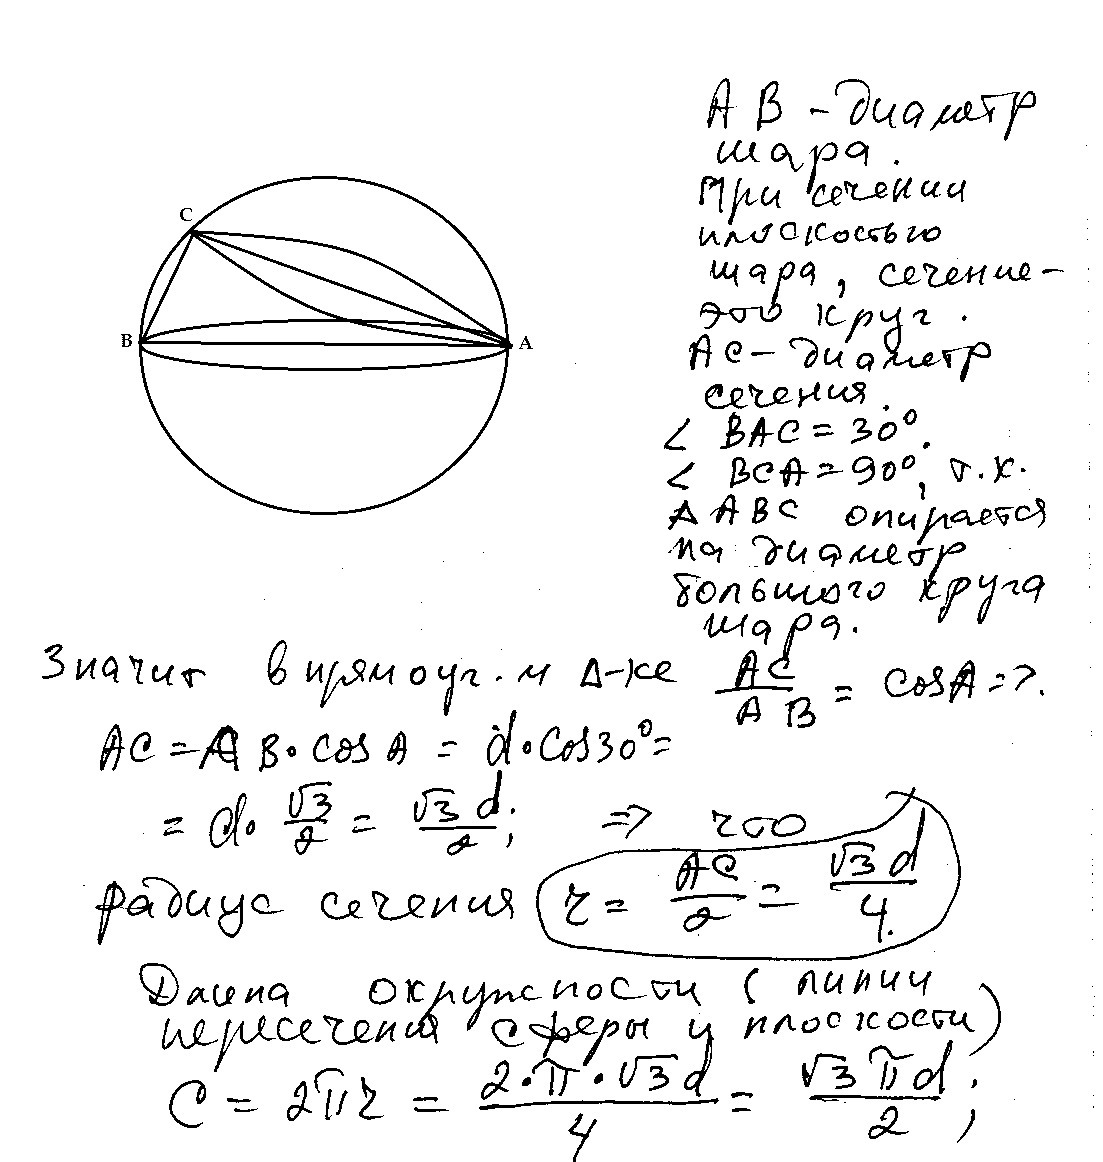 C
B
A
AB - диаметр
шара.
При сечении
плоскостью
шара, сечение-
это круг.
AC - диаметр
сечения.
∠ BAC = 30°.
∠ BCA = 90°, т.к.
Δ ABC опирается
на диаметр
большого круга
шара.
Значит в прямоуг.м Δ-ке AC/AB = cosA =>.
AC = AB · cos A = d · cos30° =
= d · √3/2 = √3 d/2; => что
радиус сечения r = AC/2 = √3 d/4.
Длина окружности (линии
пересечения сферы и плоскости)
C = 2πr = 2·π·√3 d/4 = √3 πd/2;